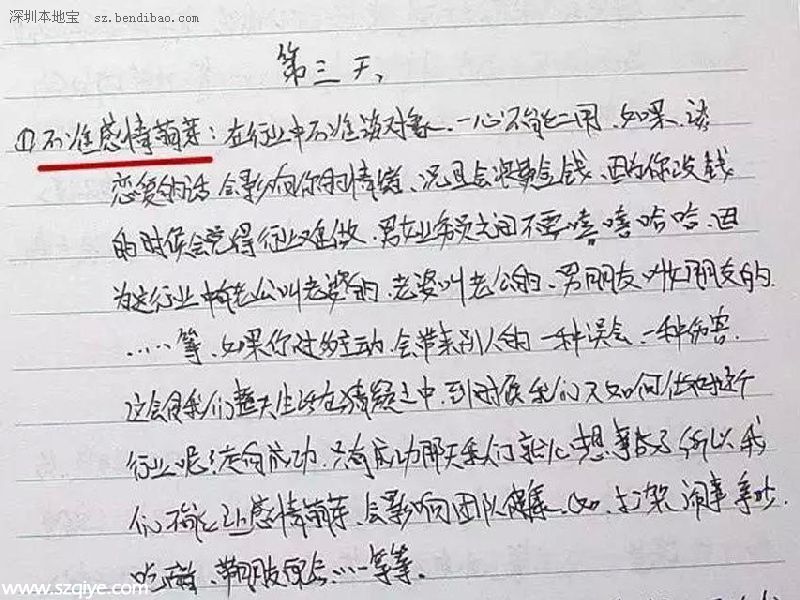 深圳本地宝 sz.bendibao.com
第三天、
①不准感情萌芽：在行业中不准谈对象、一心不能二用、如果、谈
恋爱的话会影响你的情绪、况且会浪费金钱、因为你没钱
的时候会觉得行业难做、男女业务员之间不要嘻嘻哈哈、因
为这行业中有老公叫老婆的、老婆叫老公的、男朋友叫女朋友的、
……等、如果你过分主动、会带来别人的一种误会、一种伤害、
这会使我们整天生活在猜疑之中、到时候我们又如何去和这个
行业呢？走向成功、只有成功那天我们就心想事成了所以我
们不能让感情萌芽、会影响团队健康、如、打架闹事争吵、
吃醋、带朋友回会……等等、
www.szqiye.com